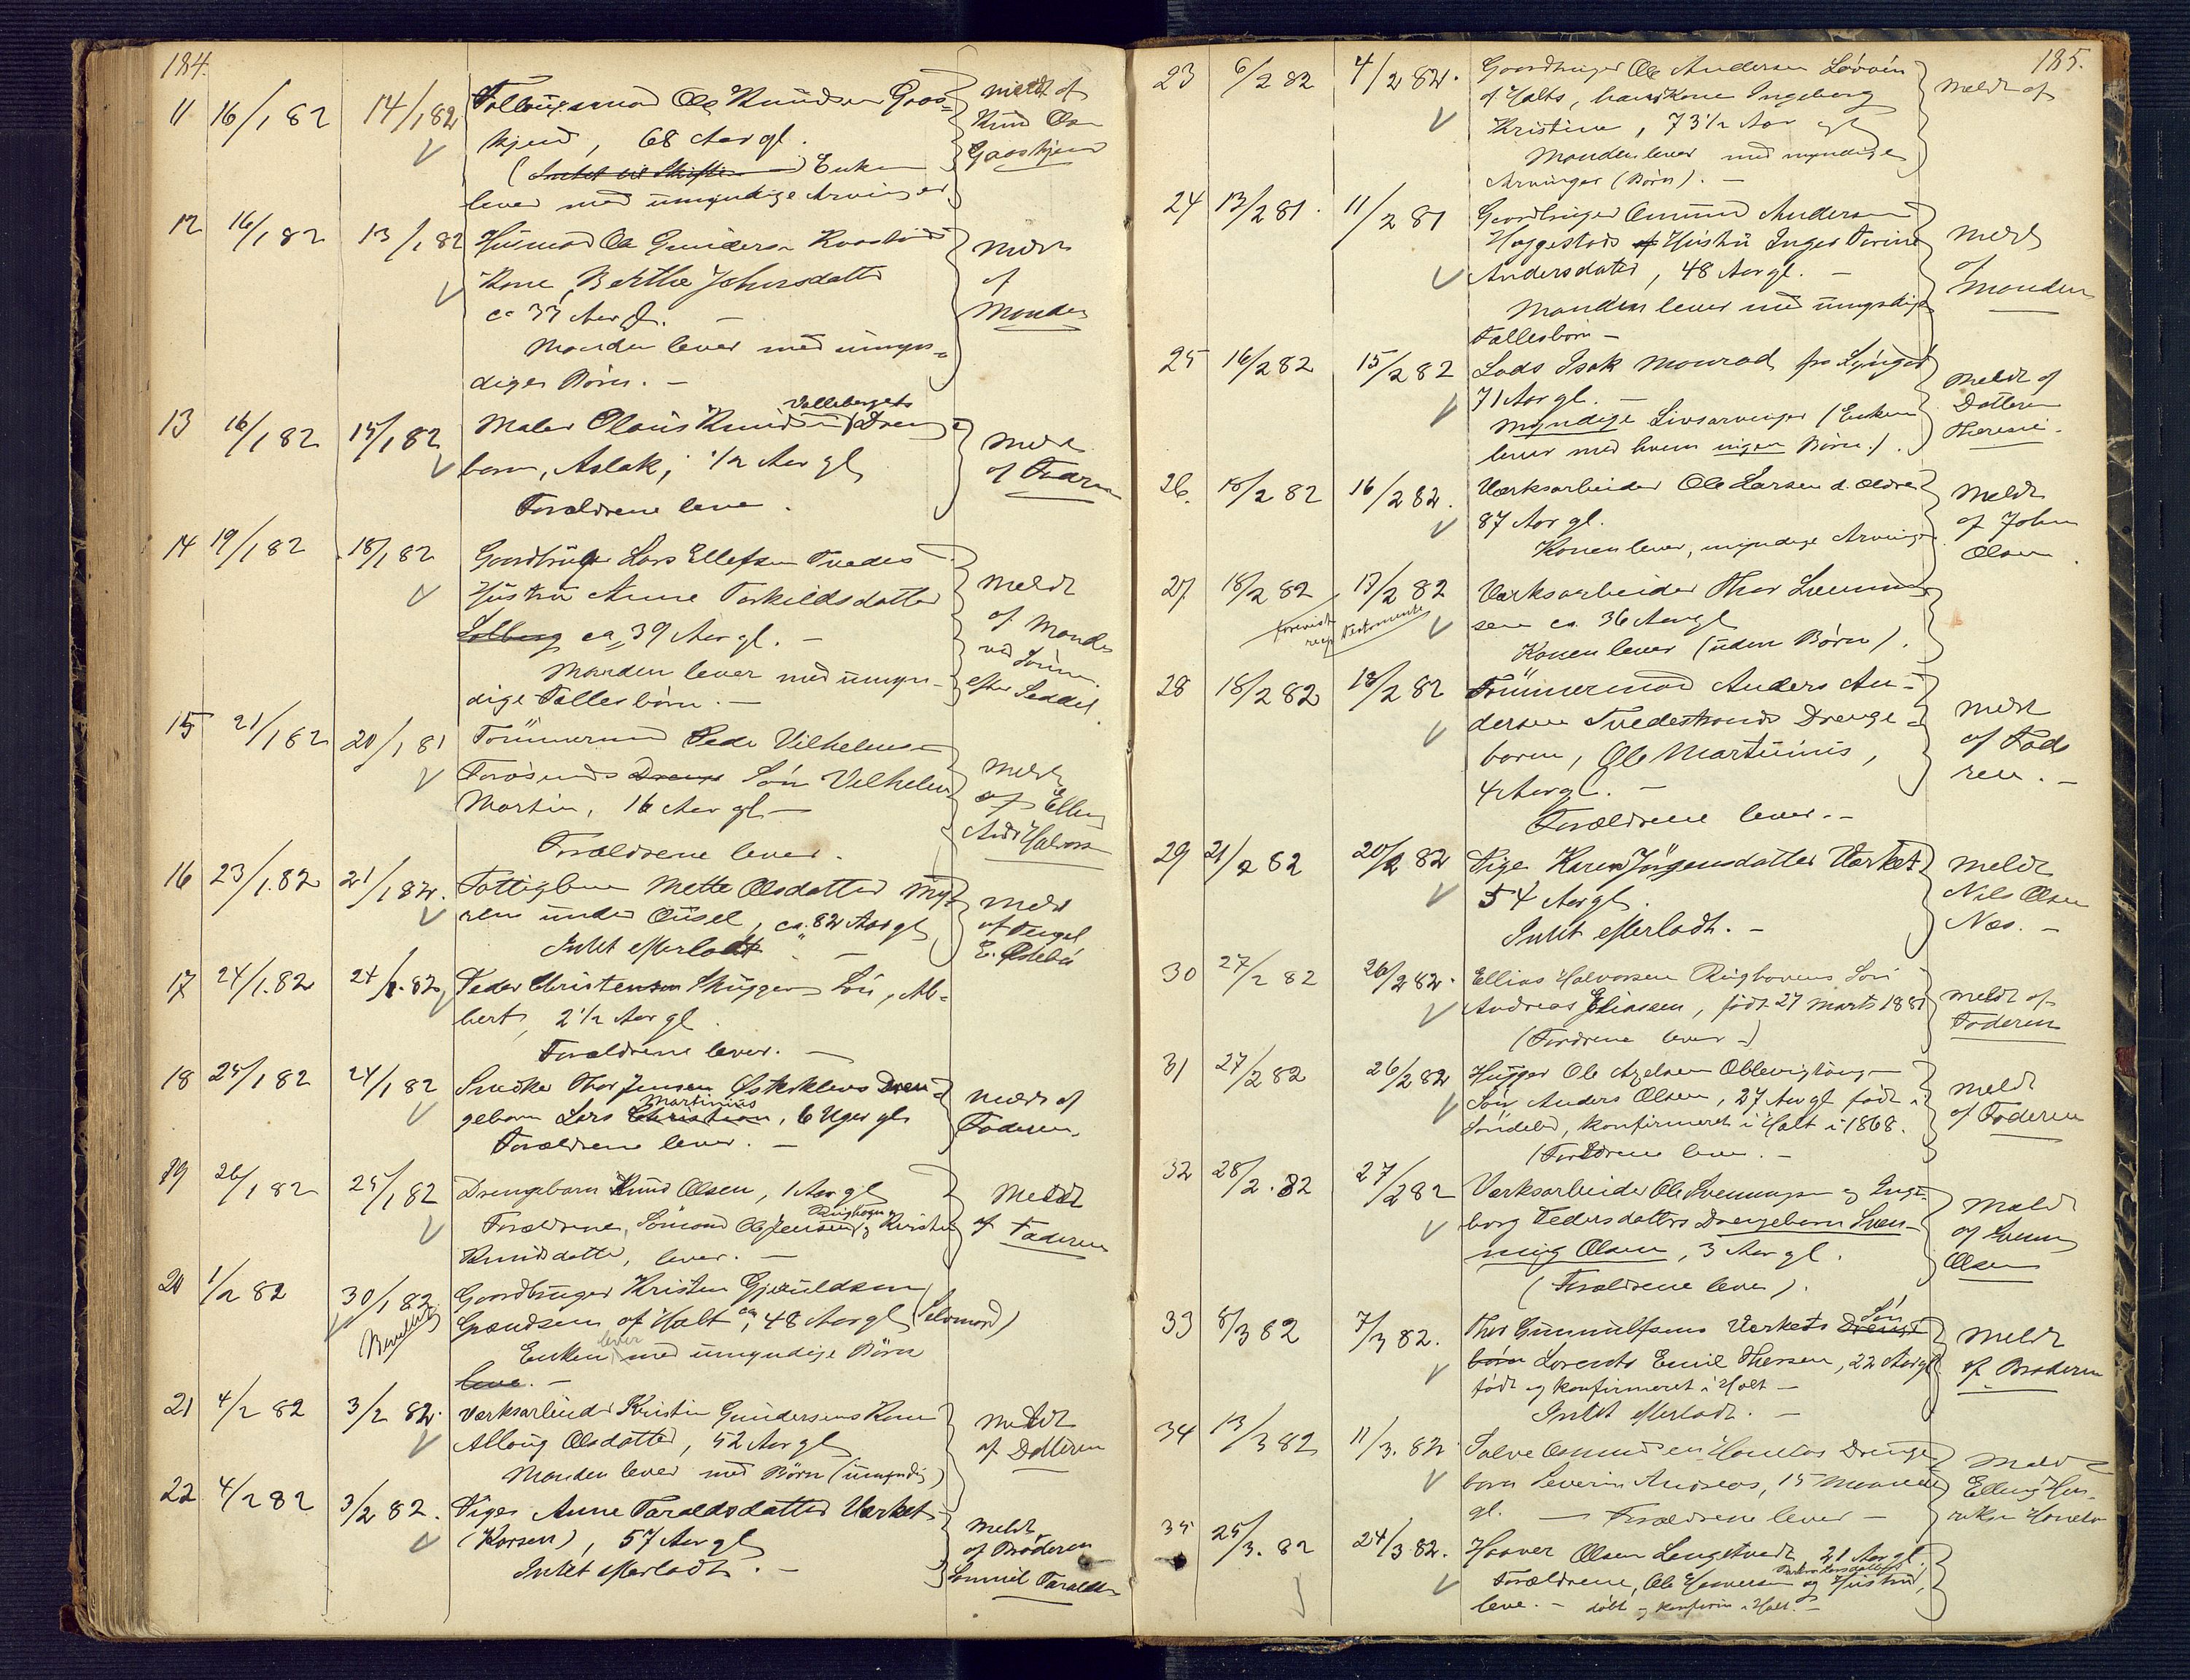 184.
11 16/1 82 14/1 82 Ole Knudsen Gaas-
kjend, 68 Aar gl.
(Intet til Skifte) Enken
lever med umyndige Arvinger
meldt af
Knud Ols
Gaaskjend
12 16/1 82 13/1 82 Husmand Ole Gundersen
Kone, Berthe Johnsdatter
ca 33 Aar gl. —
Manden lever med umyn-
dige Børn. —
Meldt
af
Manden
13 16/1 82 15/1 82 Maler Olaus Knudsen Vallebergets Drenge-
barn, Aslak, 1/2 Aar gl
Forældrene leve.
Meldt
af Faderen
14 19/1 82 18/1 82 Gaardbruger Lars Ellefsen Tvedes
Hustru Anne Torkildsdatter
Solberg ca 39 Aar gl. —
Manden lever med umyn-
dige Fællesbørn. —
Meldt
af Manden
ved Sønnen
efter Seddel.
15 21/1 82 20/1 81 Tømmermand Peder Vilhelmsen
Dreng Søn Vilhelm
Martin, 16 Aar gl —
Forældrene lever.
Meldt
af Elling
Andr Halvors
16 23/1.82 21/1 82. Fattiglem Mette Olsdatter My-
ren under Ousel, ca. 82 Aar gl
Intet efterladt. —
Meldt
af Tengel
E. Østebø
17 24/1.82 24/1.82 Peder Christensen Skuggens Søn, Al-
bert, 2 1/2 Aar gl.
Forældrene lever. —
18 25/1 82 24/1 82 Snedker Thor Jensen Østeklevs Dren-
gebarn Lars Christian Martinius, 6 Uger gl
Forældrene lever. —
Meldt af
Faderen.
19 26/1 82 25/1 82 Drengebarn Knud Olsen, 1 Aar gl
Forældrene, Sømand Ole Jensen og Kirsten
Knudsdatter, lever. —
Meldt
af Faderen
20 1/2 82 30/1 82 Gaardbruger Kristen Gjeruldsen
Grændsen af Holt, ca 48 Aar gl (Selvmord)
Enken lever med umyndige Børn
leve. —
21 4/2 82 3/2 82. Værksarbeider Kristen Gundersens Kone
Allaug Olsdatter, 52 Aar gl
Manden lever med Børn (umyndig)
Meldt
af Datteren
22 4/2 82 3/2 82. Pige Anne Taraldsdatter Værket
(Korsen), 57 Aar gl
Intet efterladt. —
Meldt
af Broderen
Samuel Taraldsen
185.
23 6/2 82 4/2 82. Gaardbruger Ole Andersen Løvvin
af Holts, hans Kone Ingeborg
Kristine, 73 1/2 Aar gl
Manden lever med myndige
Arvinger (Børn). —
Meldt af
24 13/2 81. 11/2 81 Gaardbruger Omund Andersen
Haggestads Hustru Inger Torine
Andersdatter, 48 Aar gl. —
Manden lever med umyndige
Fællesbørn —
Meldt
af
Manden
25 16/2 82 15/2 82 Lods Isak Monrad fra Lyngør
71 Aar gl. —
Myndige Livsarvinger (Enken
lever med hvem ingen Børn.).
Meldt af
Datteren
Therese.
26. 18/2 82 16/2 82. Værksarbeider Ole Larsen d. ældre
87 Aar gl.
Konen lever, myndige Arvinger
Meldt
af John
Olsen.
27 18/2 82 17/2 82 Værksarbeider Thor Svennin-
sen ca. 36 Aar gl
Konen lever (uden Børn).
forevist
reip Testamente
28 18/2 82 18/2 82 Tømmermand Anders An-
dersen Tvedestrands Drenge-
barn, Ole Martinius,
4 Aar gl. —
Forældrene lever. —
Meldt
af Fade
ren. —
29 21/2 82 20/2 82 Pige Karen Jørgensdatter Værket
54 Aar gl.
Intet efterladt. —
Meldt
Nils Olsen
Næs. —
30 27/2 82 26/2 82. Ellias Halvorsen Ringhovens Søn
Andreas Eliassen, født 27 Marts 1881
(Fordrene lever —)
Meldt af
Faderen
31 27/2 82 26/2 82 Hugger Ole Axelsen
Søn Anders Olsen, 27 Aar gl født i
Søndeled, konfirmeret i Holt i 1868.
(Forældrene leve. —
Meldt
af Faderen
32 28/2.82 27/2 82 Værksarbeider Ole Svenningsen og Inge-
borg Pedersdatters Drengebarn Sven-
ning Olsen, 3 Aar gl.
(Forældrene lever).
Meldt
af Svenning
Olsen
33 8/3 82 7/3 82. Thor Gunnulfsens Værkets Drenge Søn
børn Lorents Emil Thorsen, 22 Aar gl
født og konfirmeret i Holt —
Intet efterladt. —
Meldt
af Broderen
34 13/3 82 11/3. 82. Salve Omundsen Drenge-
barn Severin Andreas, 15 Maaneder
gl. — Forældrene lever —
Meldt
Elling Hen-
riksen
35 25/3. 82 24/3 82. Haaver Olsen Langetvedt, 21 Aar gl.
Forældrene, Ole Haaversen og Hustru,
leve. — døbt og konfirm i Holt. —